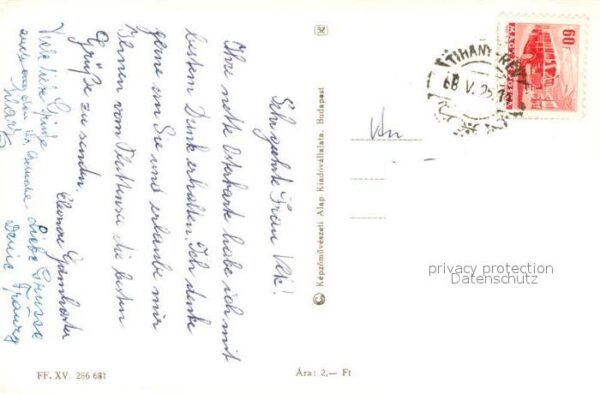 Sehr geehrte Frau
Ihre nette Osterkarte habe ich mit
bestem Dank erhalten. Ich denke
gerne an Sie und erlaube mir
Ihnen vom Plattensee die besten
Grüße zu senden.
Eleonore
Viele liebe Grüße
Liebe Grüsse
FF. XV. 286-681
Ára: 2,— Ft
Képzőművészeti Alap Kiadóvállalata, Budapest
An
60
MAGYAR POSTA
TIHANY-RÉV
68 V. 25. 14
privacy protection
Datenschutz